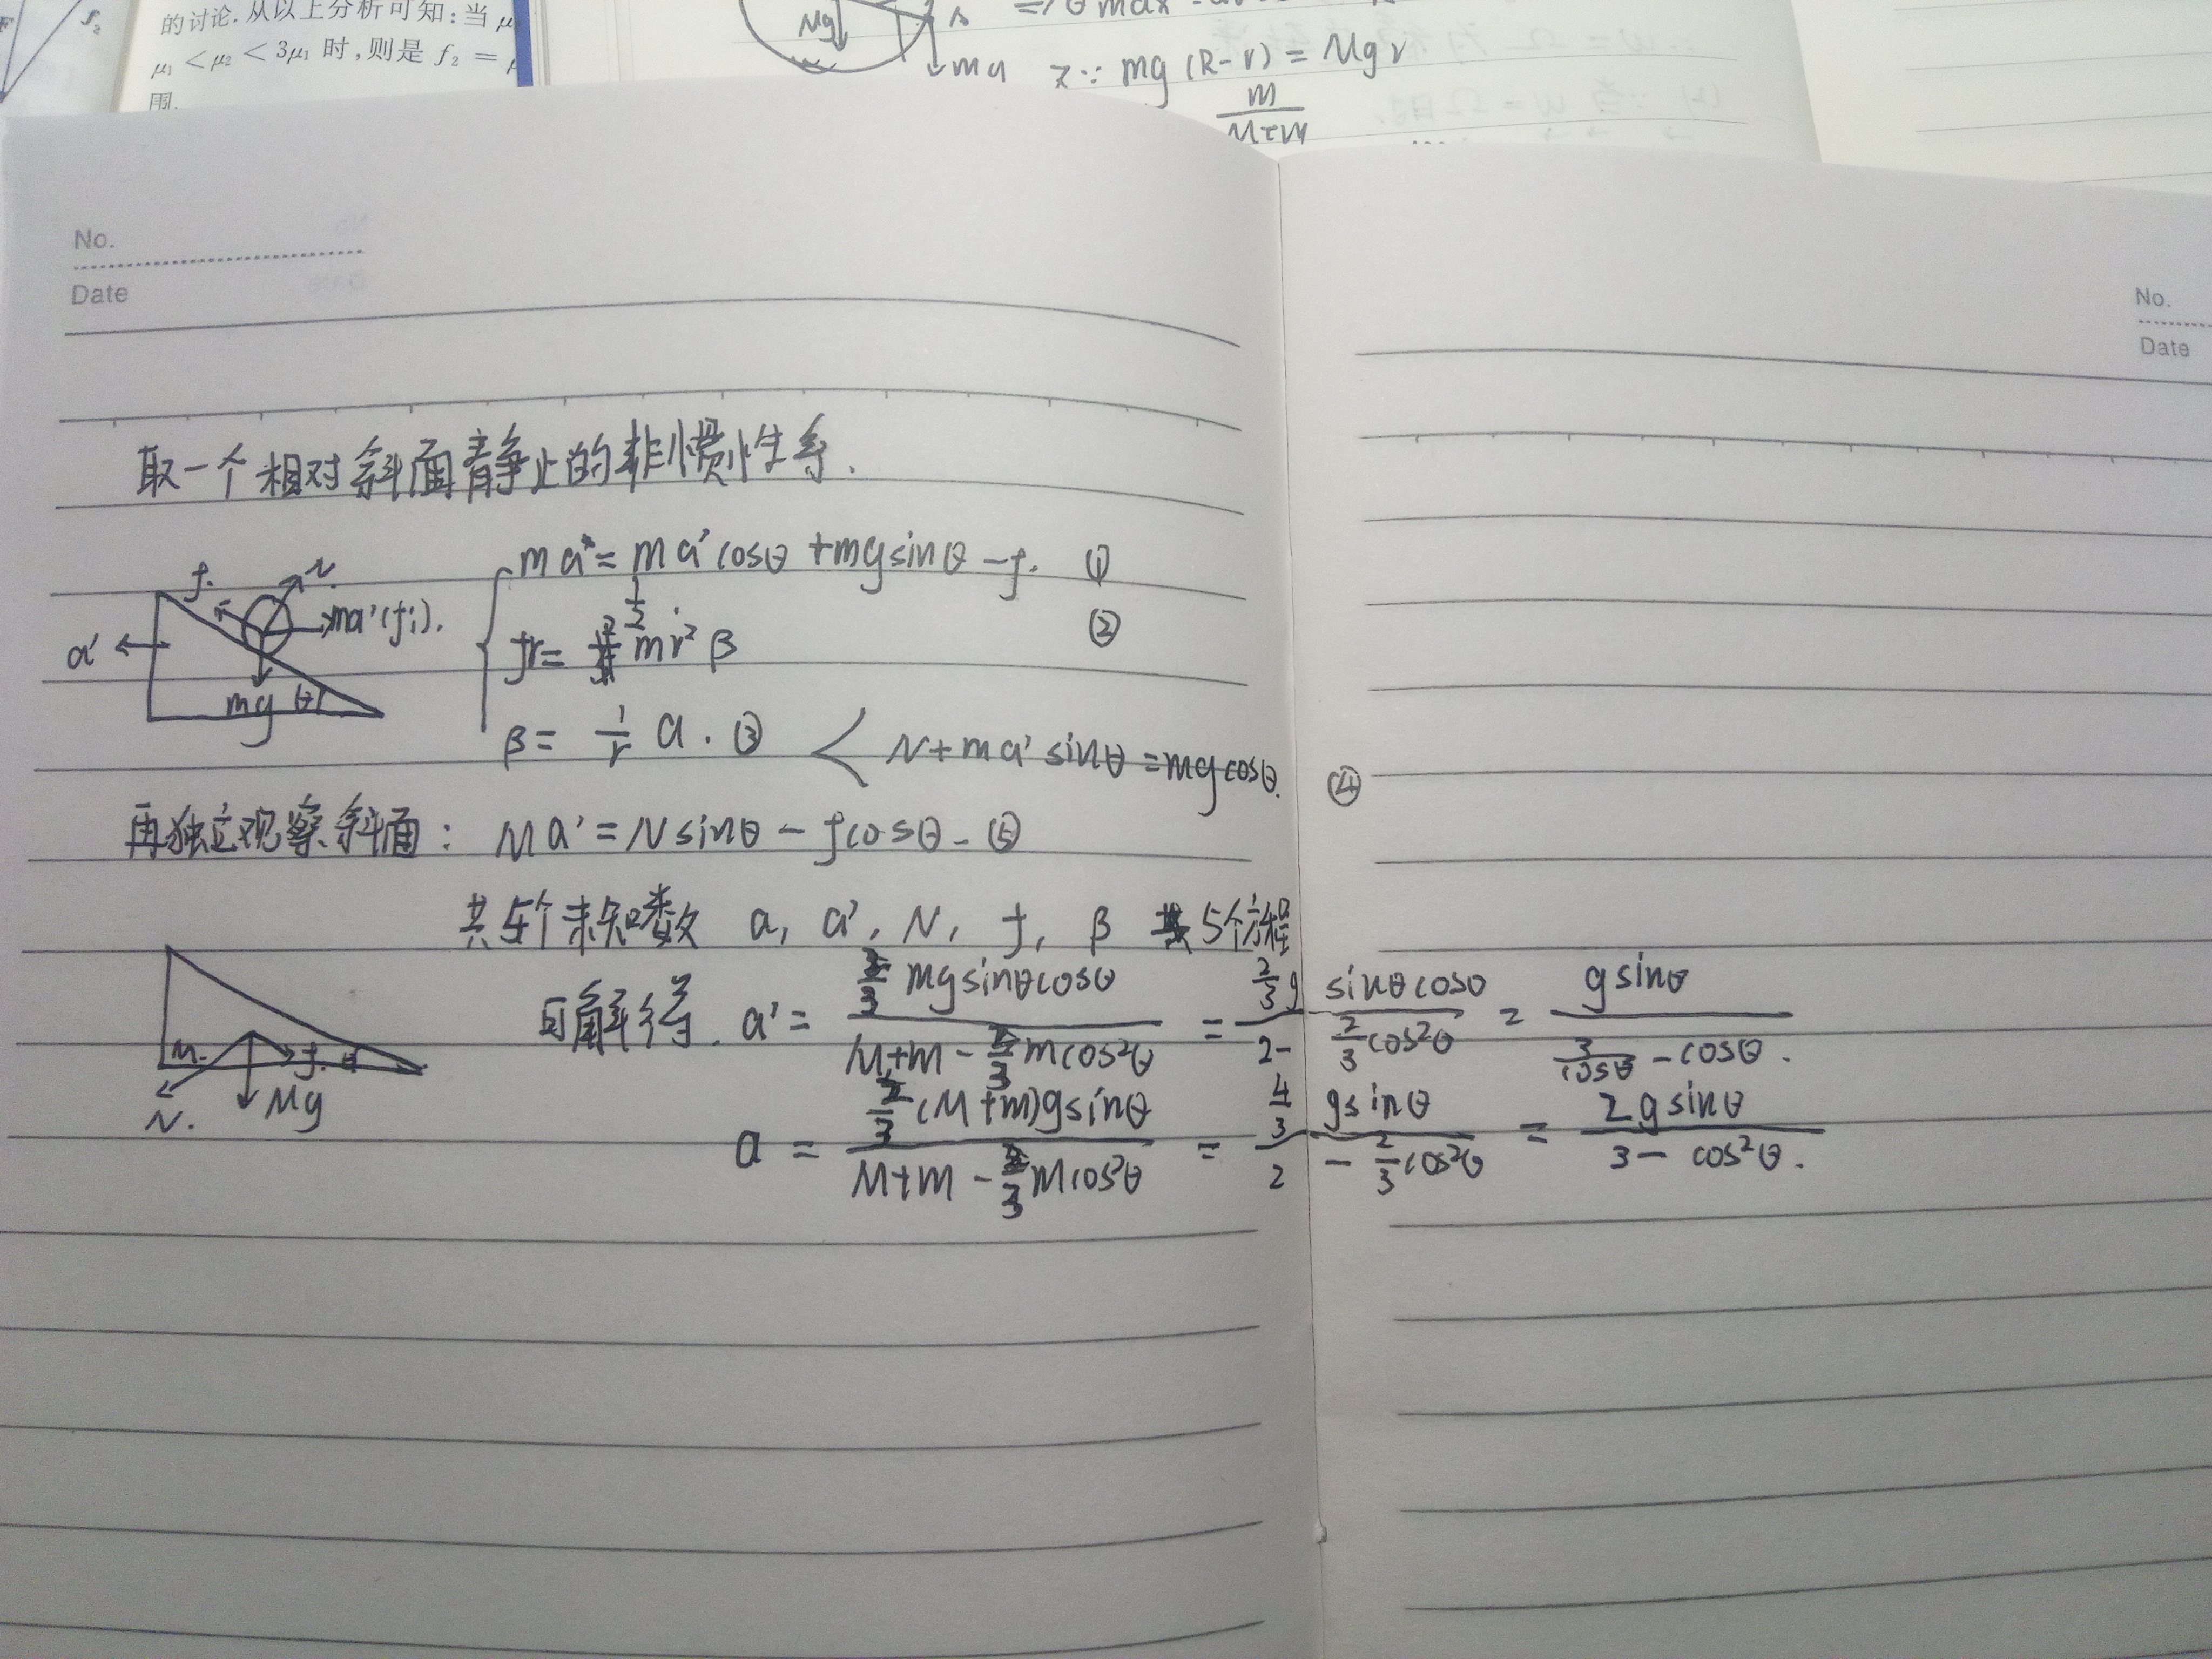 f₂
的讨论.从以上分析可知:当 μ
μ₁ < μ₂ < 3μ₁ 时,则是 f₂ =
围.
Mg
ma
又∵ mg (R-r) = Mg r
m
M+m
No.
Date
No.
Date
取一个相对斜面静止的非惯性系.
ma = ma'cosθ + mgsinθ - f. ①
f. N. ma'(fi). a' mg θ
fr = 1/2 mr² β ②
β = 1/r a. ③ < N + ma' sinθ = mg cosθ. ④
再独立观察斜面: Ma' = Nsinθ - fcosθ. ⑤
共5个未知数 a, a', N, f, β 5个方程
可解得. a' = (2/3 mgsinθcosθ)/(M+m - 2/3 mcos²θ) = (2/3 g sinθcosθ)/(2 - 2/3 cos²θ) = (gsinθ)/(3/cosθ - cosθ).
M. f. θ N. Mg
a = (2/3 (M+m)gsinθ)/(M+m - 2/3 mcos²θ) = (4/3 gsinθ)/(2 - 2/3 cos²θ) = (2gsinθ)/(3 - cos²θ).